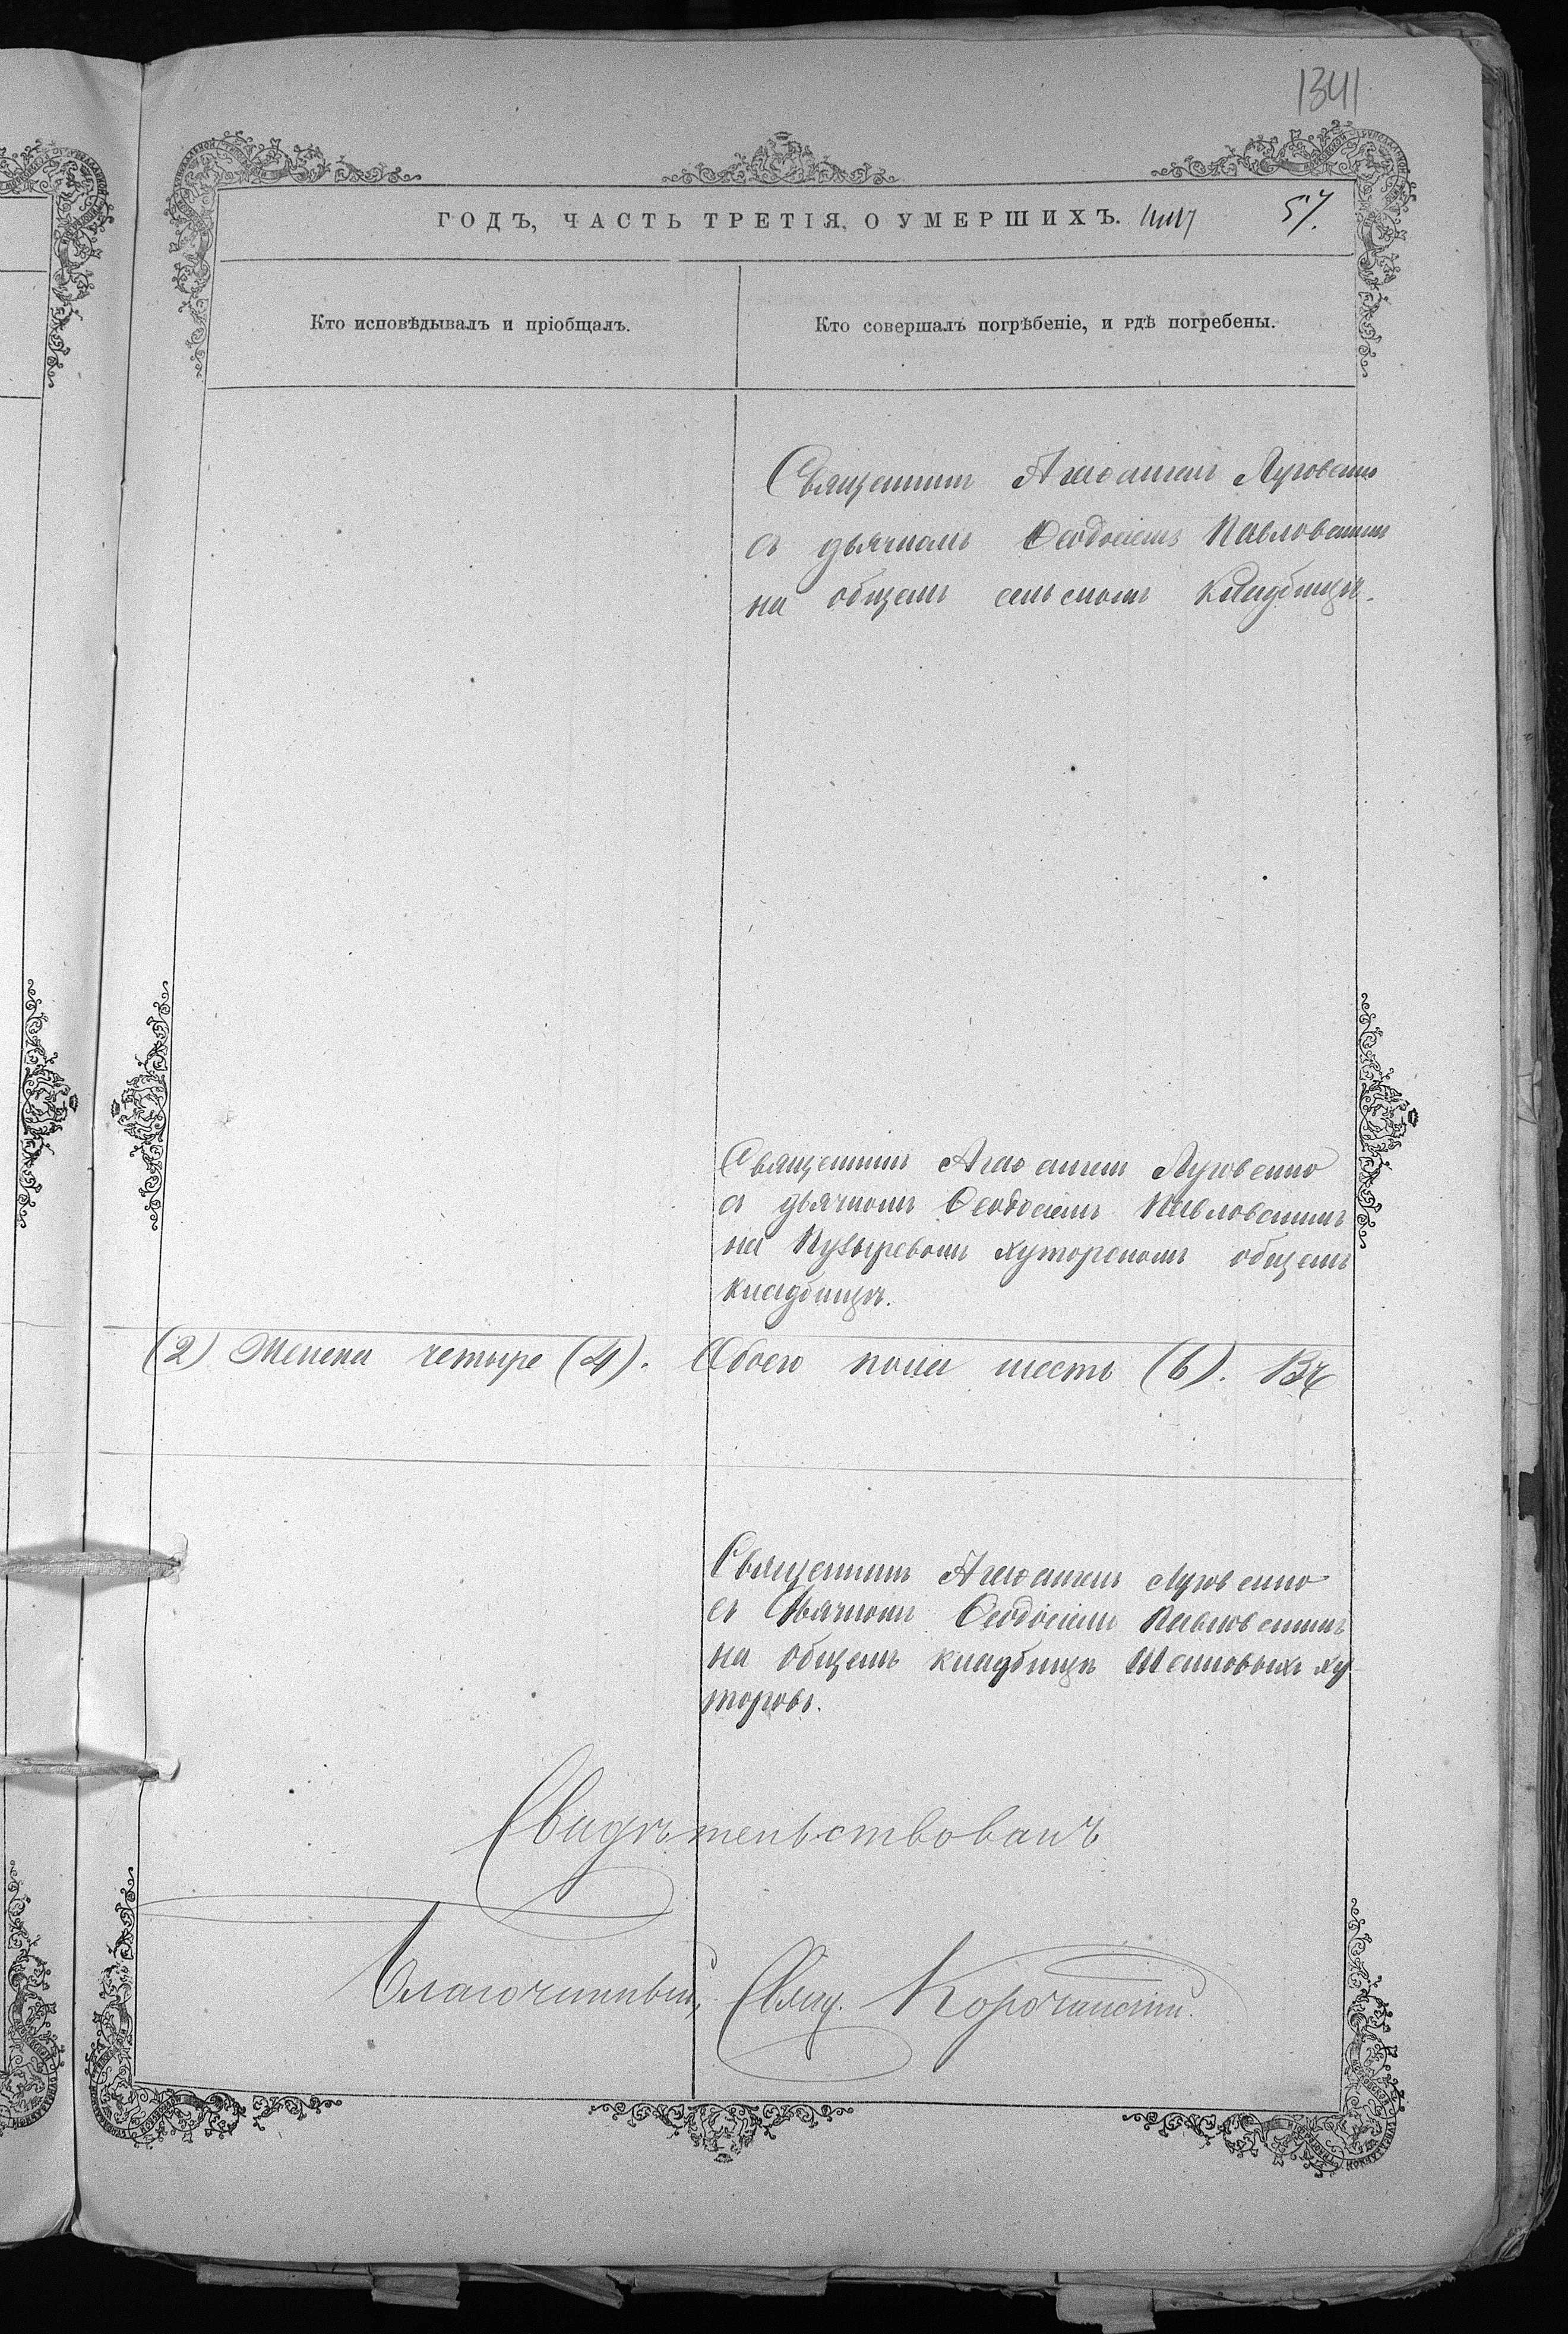 1341
ГОДЪ, ЧАСТЬ ТРЕТІЯ, О УМЕРШИХЪ. 57.
Кто исповѣдывалъ и пріобщалъ.
Кто совершалъ погрѣбеніе, и гдѣ погребены.
Священникъ Агаѳангелъ Луговенко
съ дьячкомъ Ѳеодосіемъ Павловскимъ
на общемъ сельскомъ кладбищѣ.
Священникъ Агаѳангелъ Луговенко
съ дьячкомъ Ѳеодосіемъ Павловскимъ
на Пузыревомъ хуторскомъ общемъ
кладбищѣ.
(2) Женска четыре (4). Обоего пола шесть (6). Въ
Священникъ Агаѳангелъ Луговенко
съ Дьячкомъ Ѳеодосіемъ Павловскимъ
на общемъ кладбищѣ ху
торовъ.
Свидѣтельствовалъ
Благочинный, Свящ. Корочанскій.